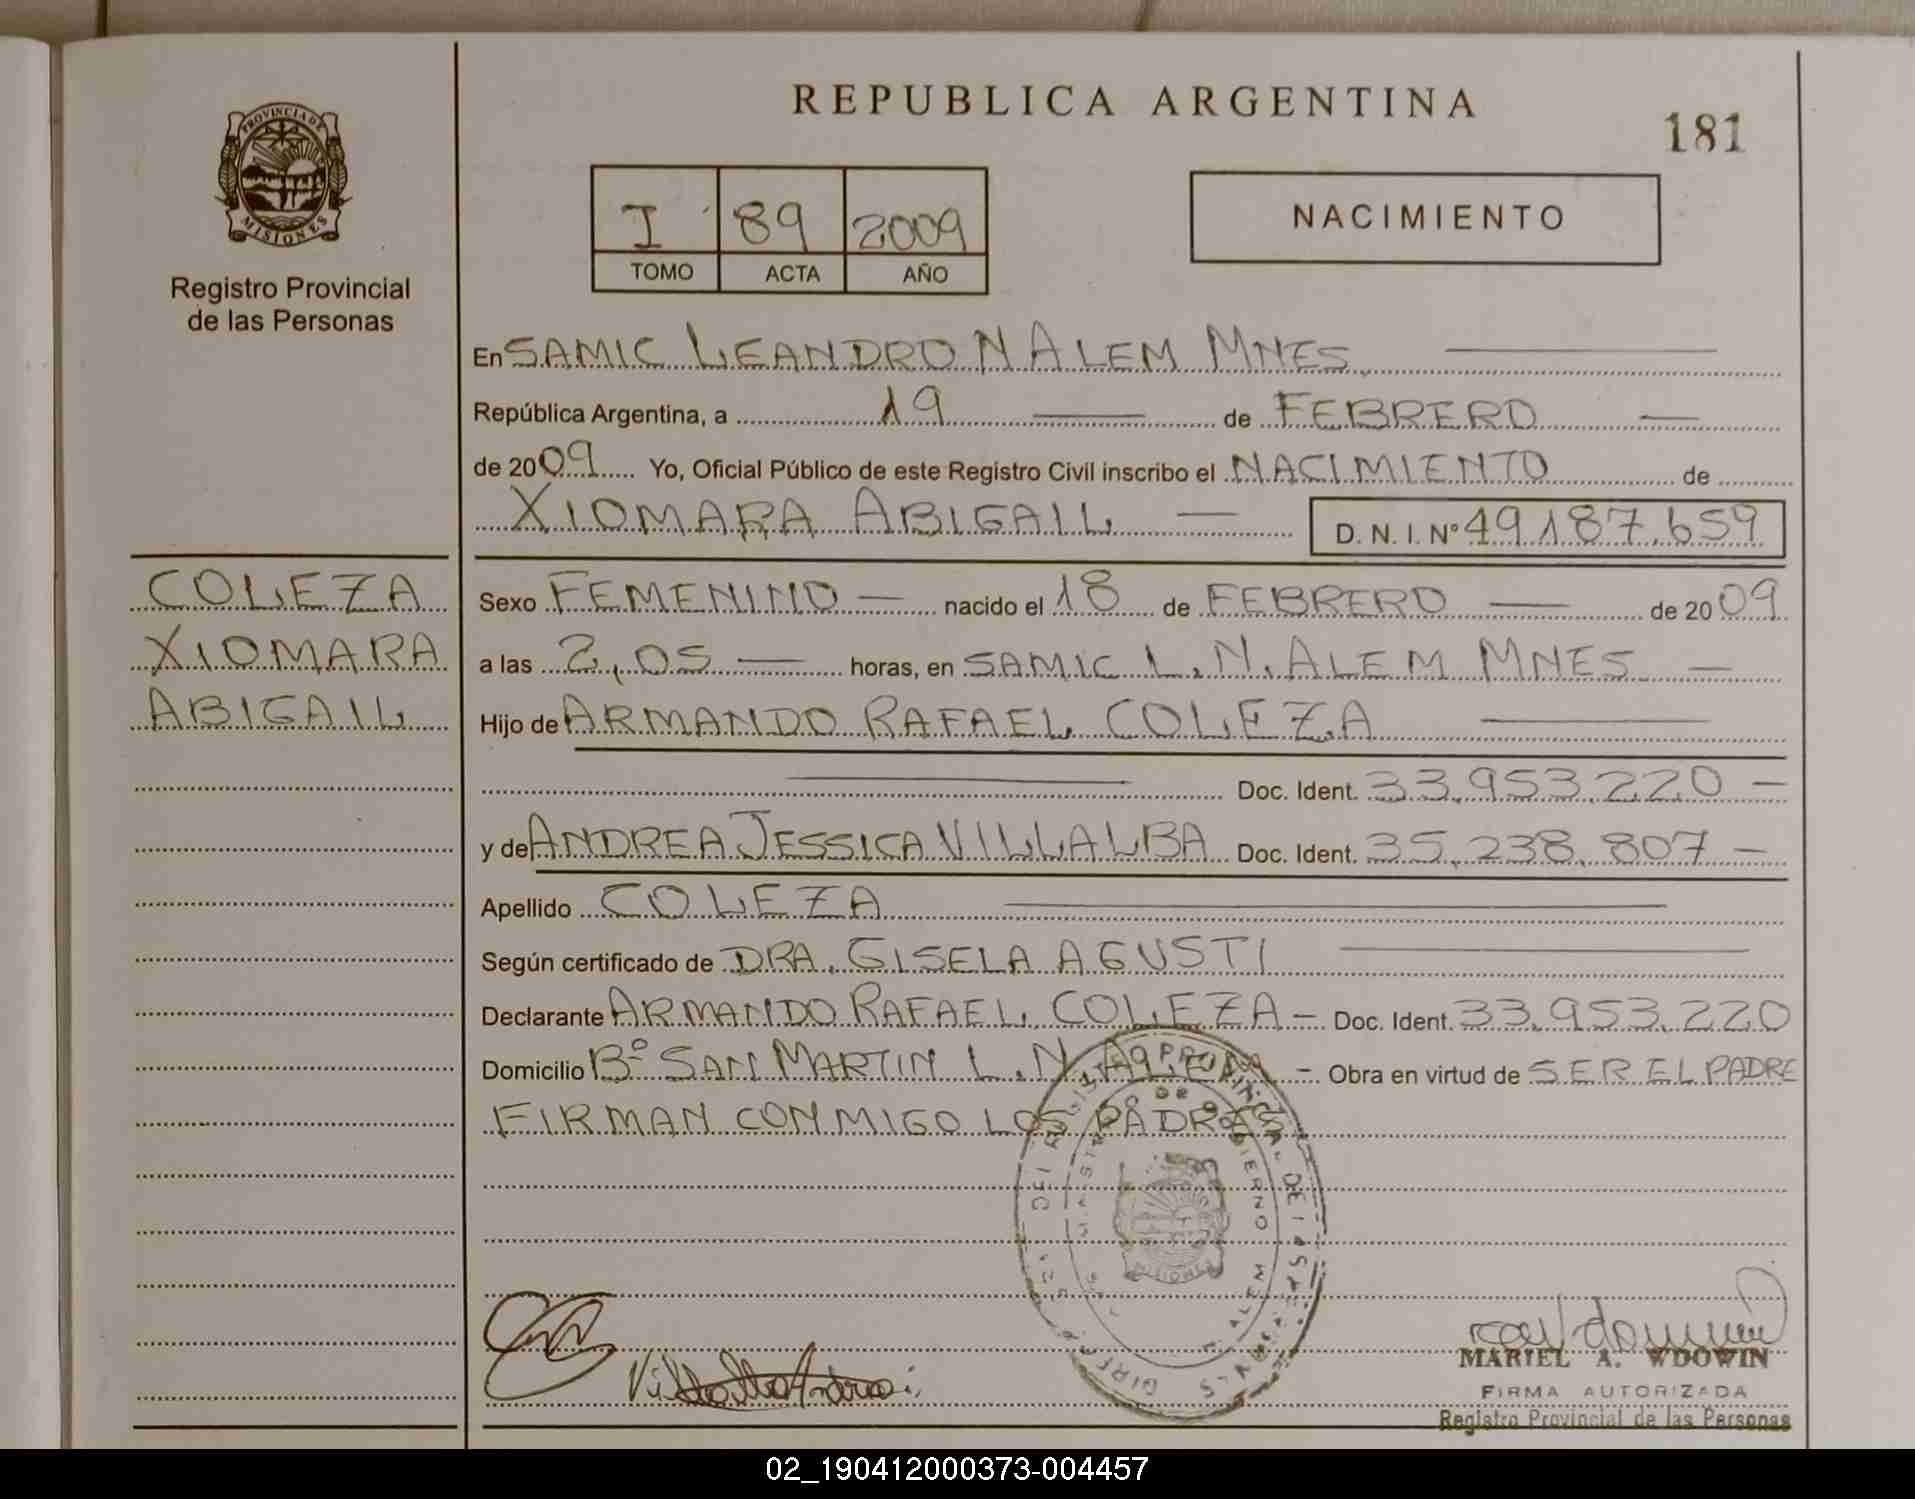 REPUBLICA ARGENTINA
181
PROVINCIA DE
MISIONES
Registro Provincial
de las Personas
I 89 2009
TOMO ACTA AÑO
NACIMIENTO
En SAMIC LEANDRO N ALEM MNES
República Argentina, a 19 de FEBRERO
de 2009 Yo, Oficial Público de este Registro Civil inscribo el NACIMIENTO de
XIOMARA ABIGAIL D. N. I. Nº 49187.659
COLEZA
XIOMARA
ABIGAIL
Sexo FEMENINO nacido el 18 de FEBRERO de 2009
a las 2,05 horas, en SAMIC L.N.ALEM MNES
Hijo de ARMANDO RAFAEL COLEZA
Doc. Ident. 33.953.220
y de ANDREA JESSICA VILLALBA Doc. Ident. 35.238.807
Apellido COLEZA
Según certificado de DRA. GISELA AGUSTI
Declarante ARMANDO RAFAEL COLEZA Doc. Ident. 33.953.220
Domicilio Bº SAN MARTIN L.N.ALEM Obra en virtud de SER EL PADRE
FIRMAN CONMIGO LOS PADRES
MISIONES
MARIEL A. WDOWIN
FIRMA AUTORIZADA
Registro Provincial de las Personas
02_190412000373-004457